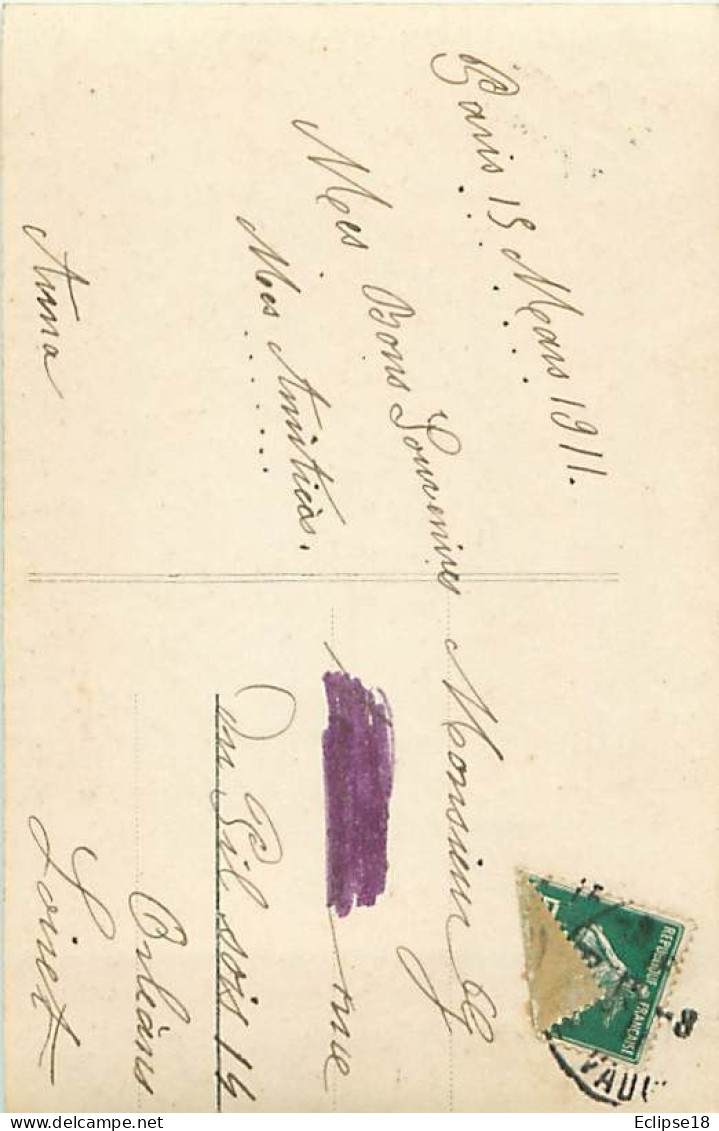 Paris 15 Mars 1911.
Mes Bons Souvenirs
Mes Amitiés.
Anna
Monsieur
rue
14
Orléans
Loiret
REPUBLIQUE FRANÇAISE
VAU
Eclipse18